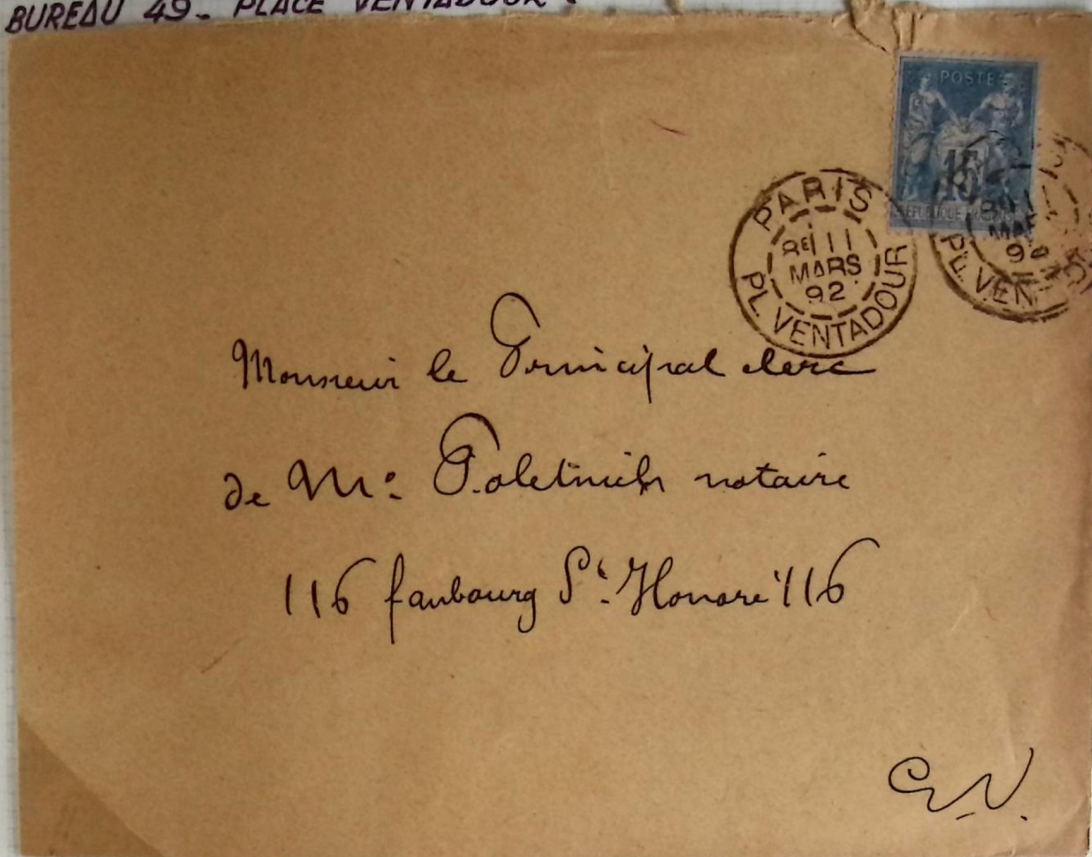 BUREAU 49 - PLACE VENTADOUR
POSTE
15
REPUBLIQUE
PARIS
8E 11
MARS
92
PL. VENTADOUR
PL. VEN
Monsieur le Principal clerc
de Me notaire
116 faubourg St. Honoré 116
E.V.